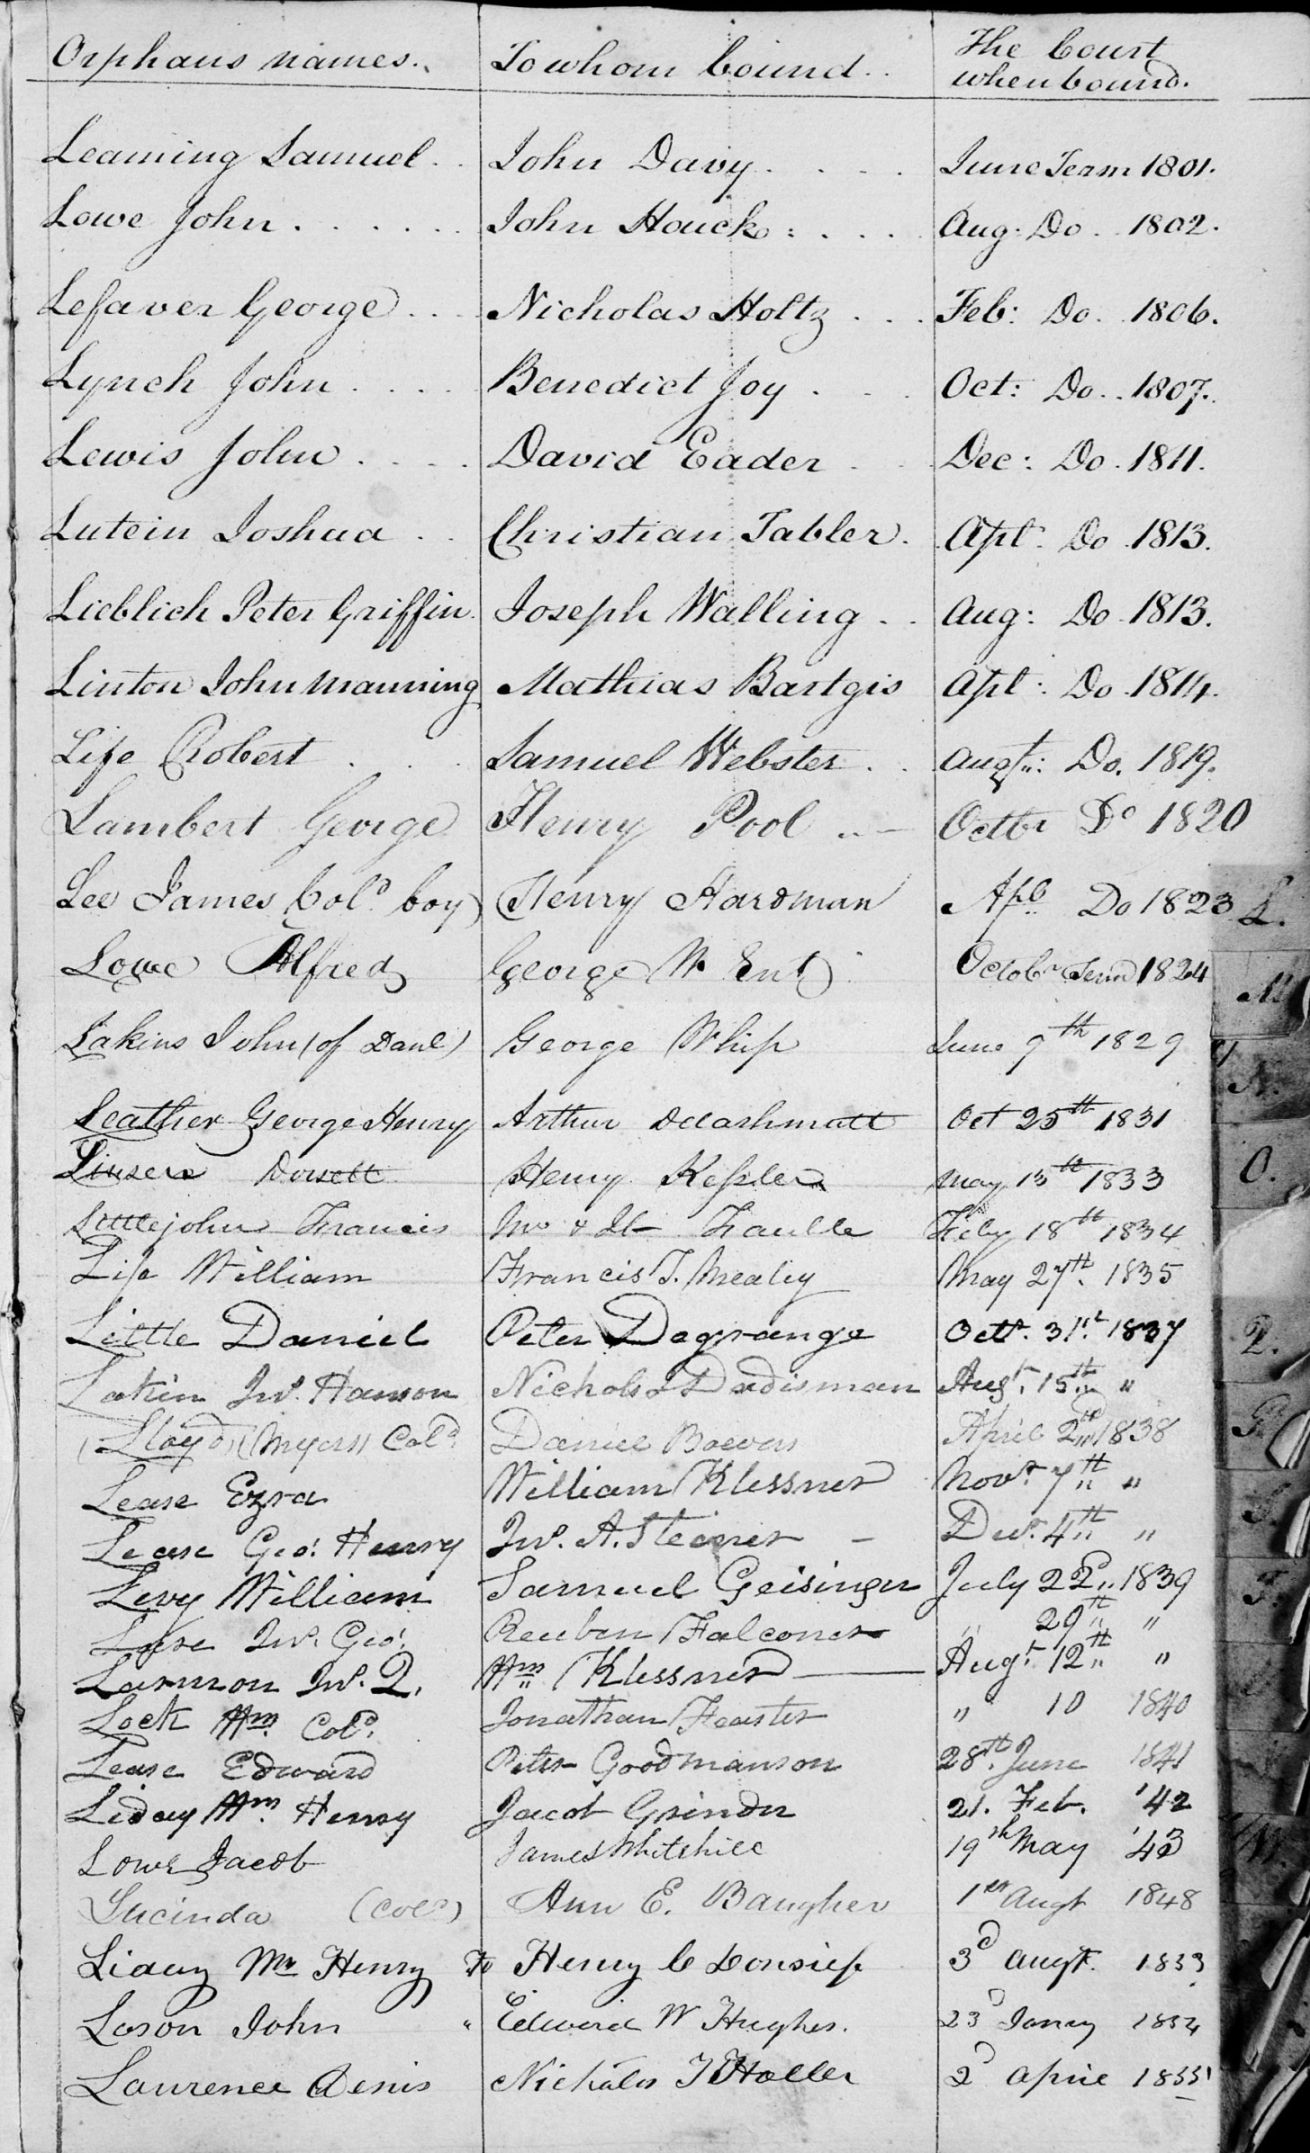 Orphans names. To whom bound. The Court when bound.
Leaming Samuel John Davy June Term 1801.
Lowe John John Houck Aug: Do 1802.
Lefaver George Nicholas Holtz Feb: Do 1806.
Lynch John Benedict Joy Oct: Do 1807.
Lewis John David Eader Dec: Do 1811.
Lutein Joshua Christian Tabler Apl. Do 1813.
Lieblich Peter Griffin Joseph Walling Aug: Do 1813.
Linton John Manning Mathias Bartgis Apl: Do 1814.
Life Robert Samuel Webster Augt: Do. 1819.
Lambert George Henry Pool Octbr Do 1820
Lee James Cold. boy) Henry Hardman Apl Do 1823
Lowe Alfred George W Ent Octobr Term 1824
Lakins John (of Danl) George Whip June 9th 1829
Leather George Henry Arthur Delashmutt Oct 25th 1831
Dorsett Henry Kepler May 13th 1833
Littlejohn Francis Jno & Feby 18th 1834
Life William Francis T. Mealey May 27th. 1835
Little Daniel Peter Degrange Octr. 31st 1837
Lakin Jno. Hanson Nichols Dadisman Augt. 15th "
Lloyd (Myers) Cold. Daniel Bowers April 2nd 1838
Lease Ezra William Klessner Novr. 7th "
Lease Geo. Henry Jno. A. Steiner Decr. 4th "
Levy William Samuel Geisinger July 22d 1839
Jno. Geo. Reuben Falconer " 29th "
Larmon Jno. Q. Wm Klessner Augt 12th "
Lock Wm. Cold. Jonathan Feaster " 10 1840
Lease Edward Peter Goodmanson 28th June 1841
Liday Wm. Henry Jacob Grinder 21. Feb. '42
Lowe Jacob James Whitehill 19th May '43
Lucinda (Cold) Ann E. Baugher 1st Augt 1848
Liday Wm Henry To Henry C 3d Augt. 1853
Lason John " Edward W Hughes. 23d Jany 1854
Laurence Denis Nicholas T Haller 2d April 1855
L.
M
N.
O.